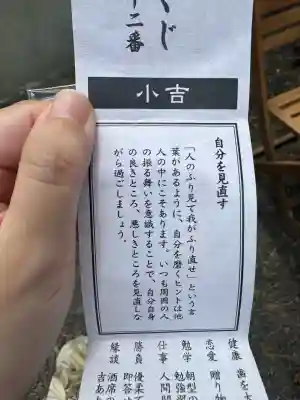 くじ
十二番
小吉
自分を見直す
「人のふり見て我がふり直せ」という言
葉があるように、自分を磨くヒントは他
人の中にこそあります。いつも周囲の人
の振る舞いを意識することで、自分自身
の良きところ、悪しきところを見直しな
がら過ごしましょう。
健康 歯を
恋愛 贈り物
勉学 朝型の
勉強
仕事 人間関
勝負 優柔不
即答
縁談 酒席の
吉あ